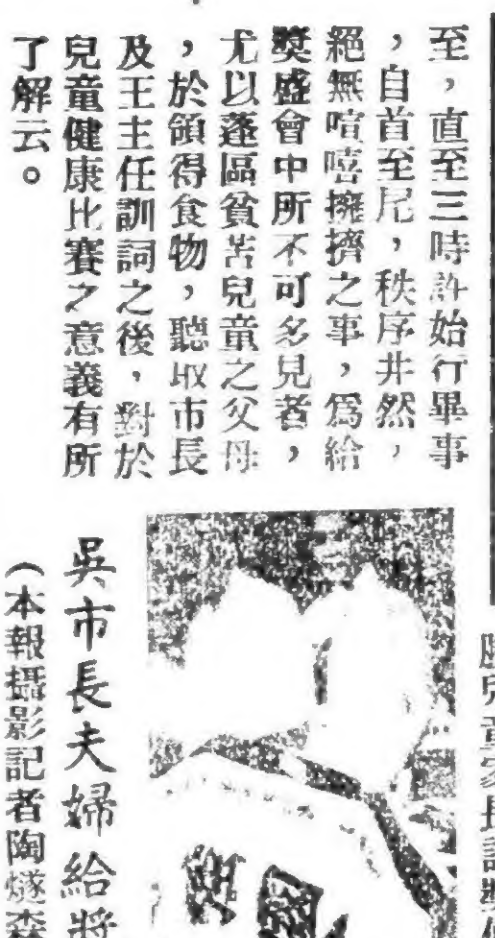 至，直至三時許始行畢事
，自首至尾，秩序井然，
絕無喧嘻擁擠之事，爲給
獎盛會中所不可多見者，
尤以蓬區貧苦兒童之父母
，於領得食物，聽取市長
及王主任訓詞之後，對於
兒童健康比賽之意義有所
了解云。
兒童家長訓
吳市長夫婦給獎
（本報攝影記者陶燧森